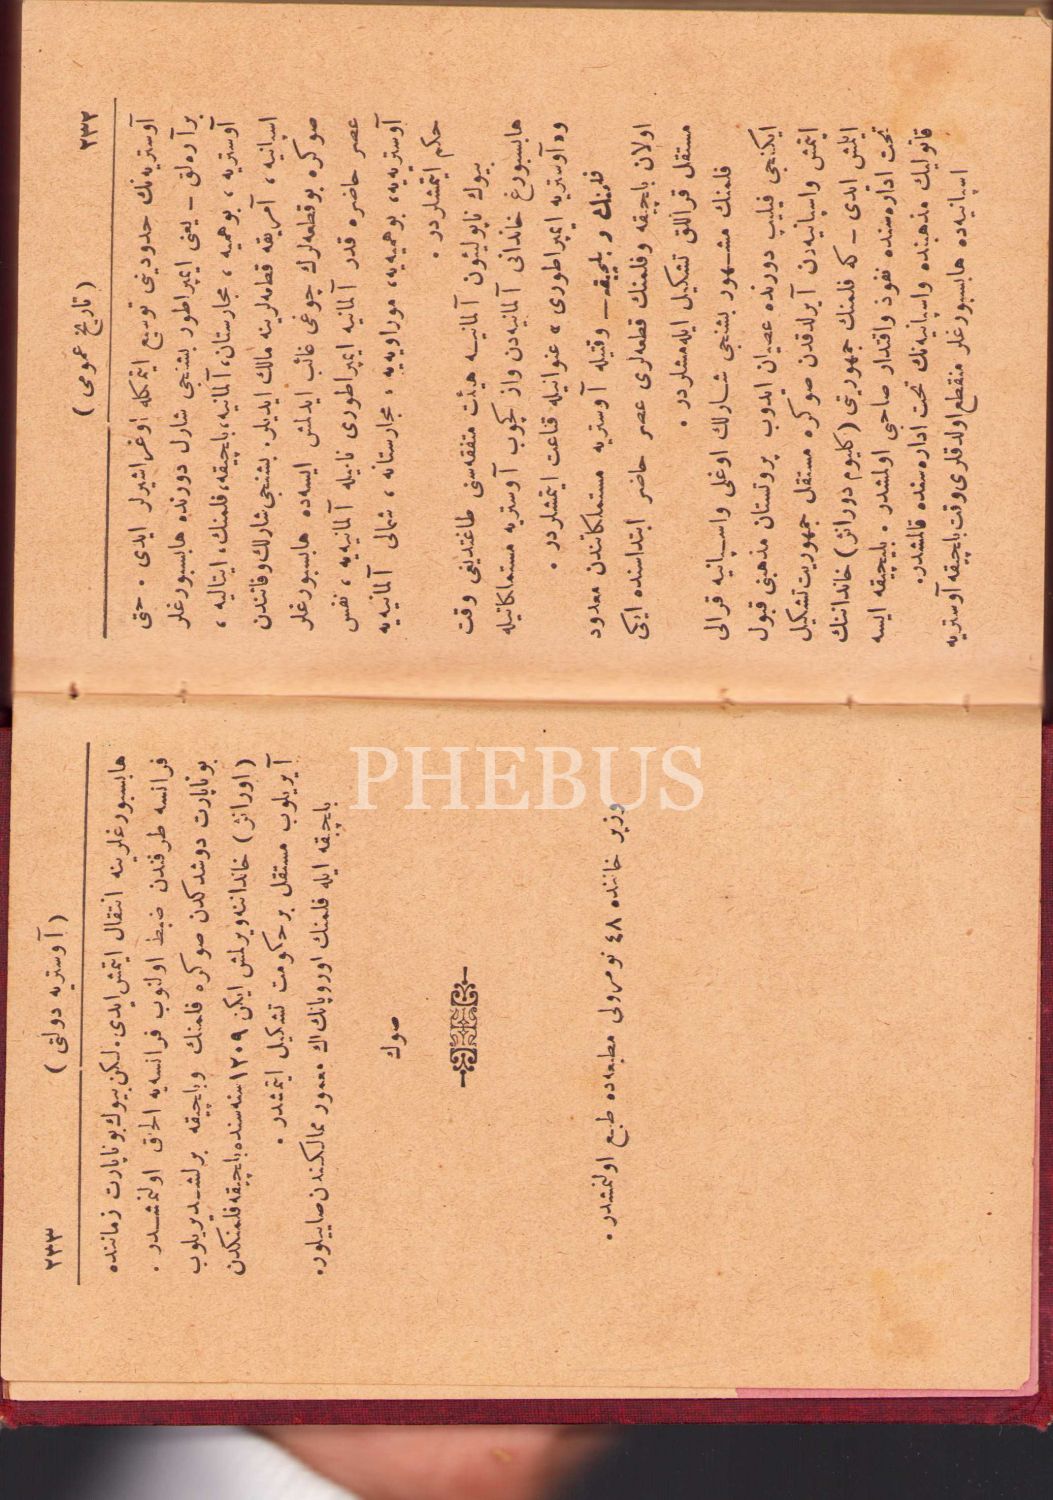 ٢٣٢
( تاریخ عمومی )
آوستریه‌نك حدودینی توسیع ایتمكله اوغراشیرلر ایدی . حتی
برآره‌لق — یعنی ایمپراطور بشنجی شارل دورنده هابسبورغلر
آوستریه ، بوهمیه ، مجارستان، آلمانیه، باچیقه، فلمنك، ایتالیه ،
اسپانیه ، آمریقه قطعه‌لرینه مالك ایدیلر. بشنجی شارلك وفاتندن
صوكره بوقطعه‌لرك چوغی غائب ایدلمش ایسه‌ده هابسبورغلر
عصر حاضره قدر آلمانیه ایمپراطوری نامیله آلمانیه‌یه ، نفس
آوستریه‌یه، بوهمیه‌یه، موراویه‌یه ، مجارستانه ، شمالی آلمانیه‌یه
حكم ایتمشلردر .
بیوك ناپولیئون آلمانیه هیئت متفقه‌سنی طاغتدیغی وقت
هابسبورغ خاندانی آلمانیه‌دن واز كچوب آوستریه مستملكاتیله
وه آوستریه ایمپراطوری » عنوانیله قناعت ایتمشلردر .
فلمنك و بلچیقه — وقتیله آوستریه مستملكاتندن معدود
اولان باچیقه وفلمنك قطعه‌لری عصر حاضر ابتداسنده ایكی
مستقل قراللق تشكیل ایله‌مشلردر .
فلمنك مشهور بشنجی شارلك اوغلی واسپانیه قرالی
ایكنجی فیلیپ دورنده عصیان ایدوب پروتستان مذهبنی قبول
ایتمش واسپانیه‌دن آیرلدقدن صوكره مستقل جمهوریت تشكیل
ایتمش ایدی — كه فلمنك جمهوریتی (كلیوم دورانژ) خانداننك
تحت اداره‌سنده نفوذ واقتدار صاحبی اولمشدر . بلچیقه ایسه
قاتولیك مذهبنده واسپانیه‌نك تحت اداره‌سنده قالمشدر.
اسپانیه‌ده هابسبورغلر منقطع اولدقلری وقت باچیقه آوستریه
( آوستریه دولتی )
٢٣٣
هابسبورغلرینه انتقال ایتمش ایدی. لكن بیوك بوناپارت زماننده
فرانسه طرفندن ضبط اولنوب فرانسه‌یه الحاق اولنمشدر .
بوناپارت دوشدكدن صوكره فلمنك وباچیقه برلشدیریلوب
(اورانژ) خانداننه ویرلمش ایكن ١٢٠٩ سنه‌سنده باچیقه فلمنكدن
آیریلوب مستقل برحكومت تشكیل ایتمشدر .
باچیقه ایله فلمنك اوروپانك اك معمور ممالكندن صاییلور.
صوك
وزیر خاننده ٤٨ نومرولی مطبعه‌ده طبع اولنمشدر .
PHEBUS